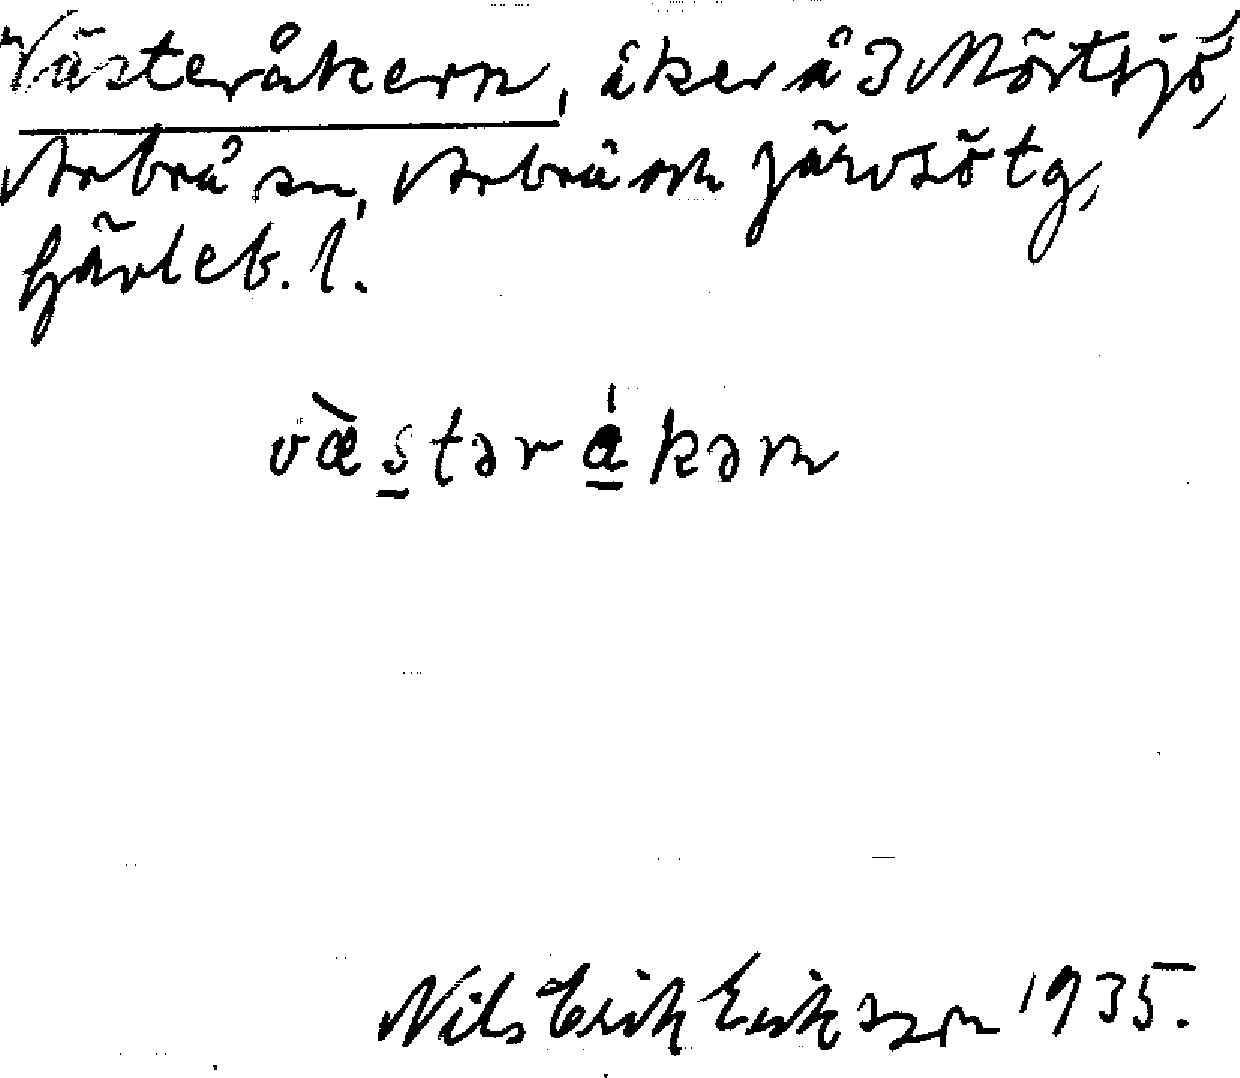 Västeråkern, åker å 3 Mörtsjö,
Arbrå sn, Arbrå och Järvsö tg,
Gävleb. l.
væ̀stərákərn
Nils Erik Eriksson 1935.